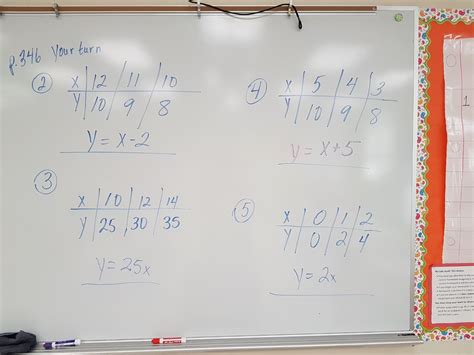 p.346 Your turn
② x | 12 | 11 | 10
y | 10 | 9 | 8
y = x - 2
③ x | 10 | 12 | 14
y | 25 | 30 | 35
y = 25x
④ x | 5 | 4 | 3
y | 10 | 9 | 8
y = x + 5
⑤ x | 0 | 1 | 2
y | 0 | 2 | 4
y = 2x
1